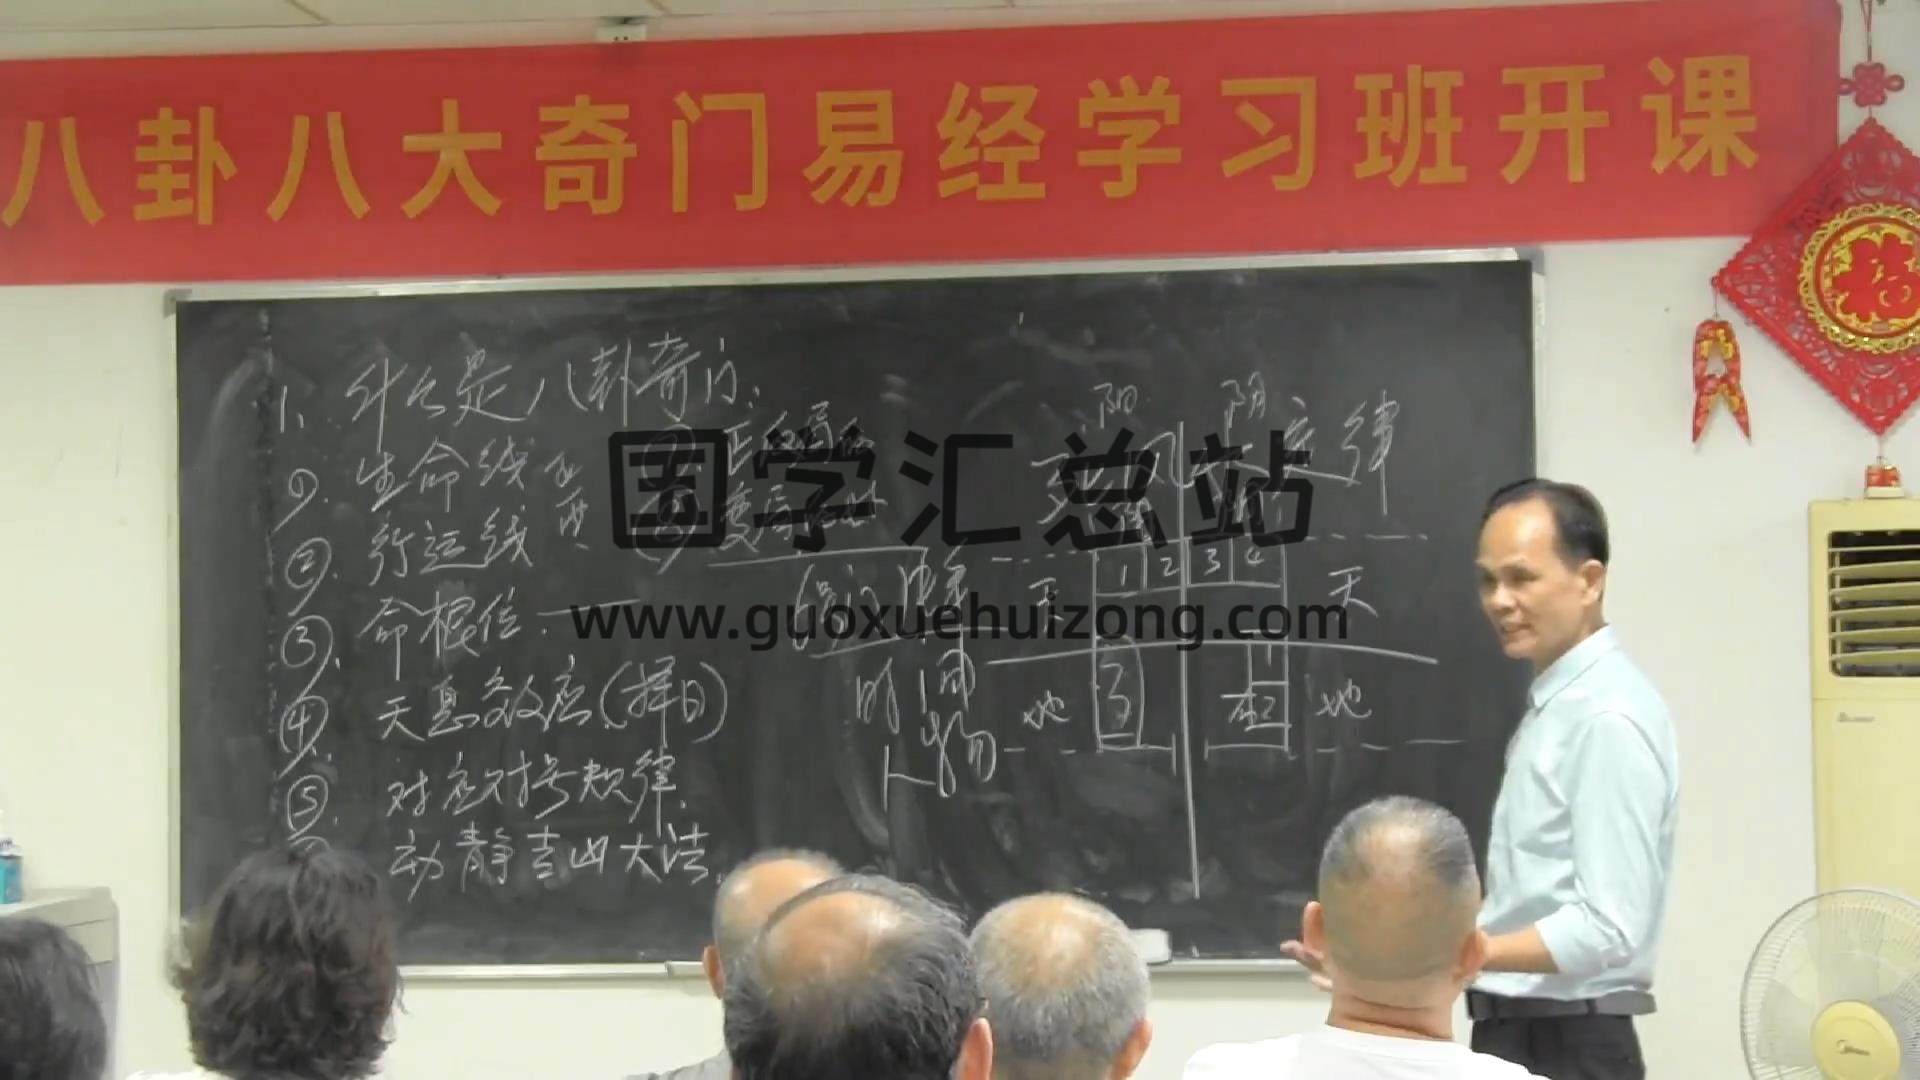 八卦八大奇门易经学习班开课
福
1、什么是八卦奇门:
①. 生命线
②. 行运线
③. 命根位.
④. 天息效应(择日)
⑤. 对应对号规律.
动静吉凶大法.
变局
阳 阴
定律
1 2 3 4
天 天
地 地
时 间
人 物
国学汇总站
www.guoxuehuizong.com